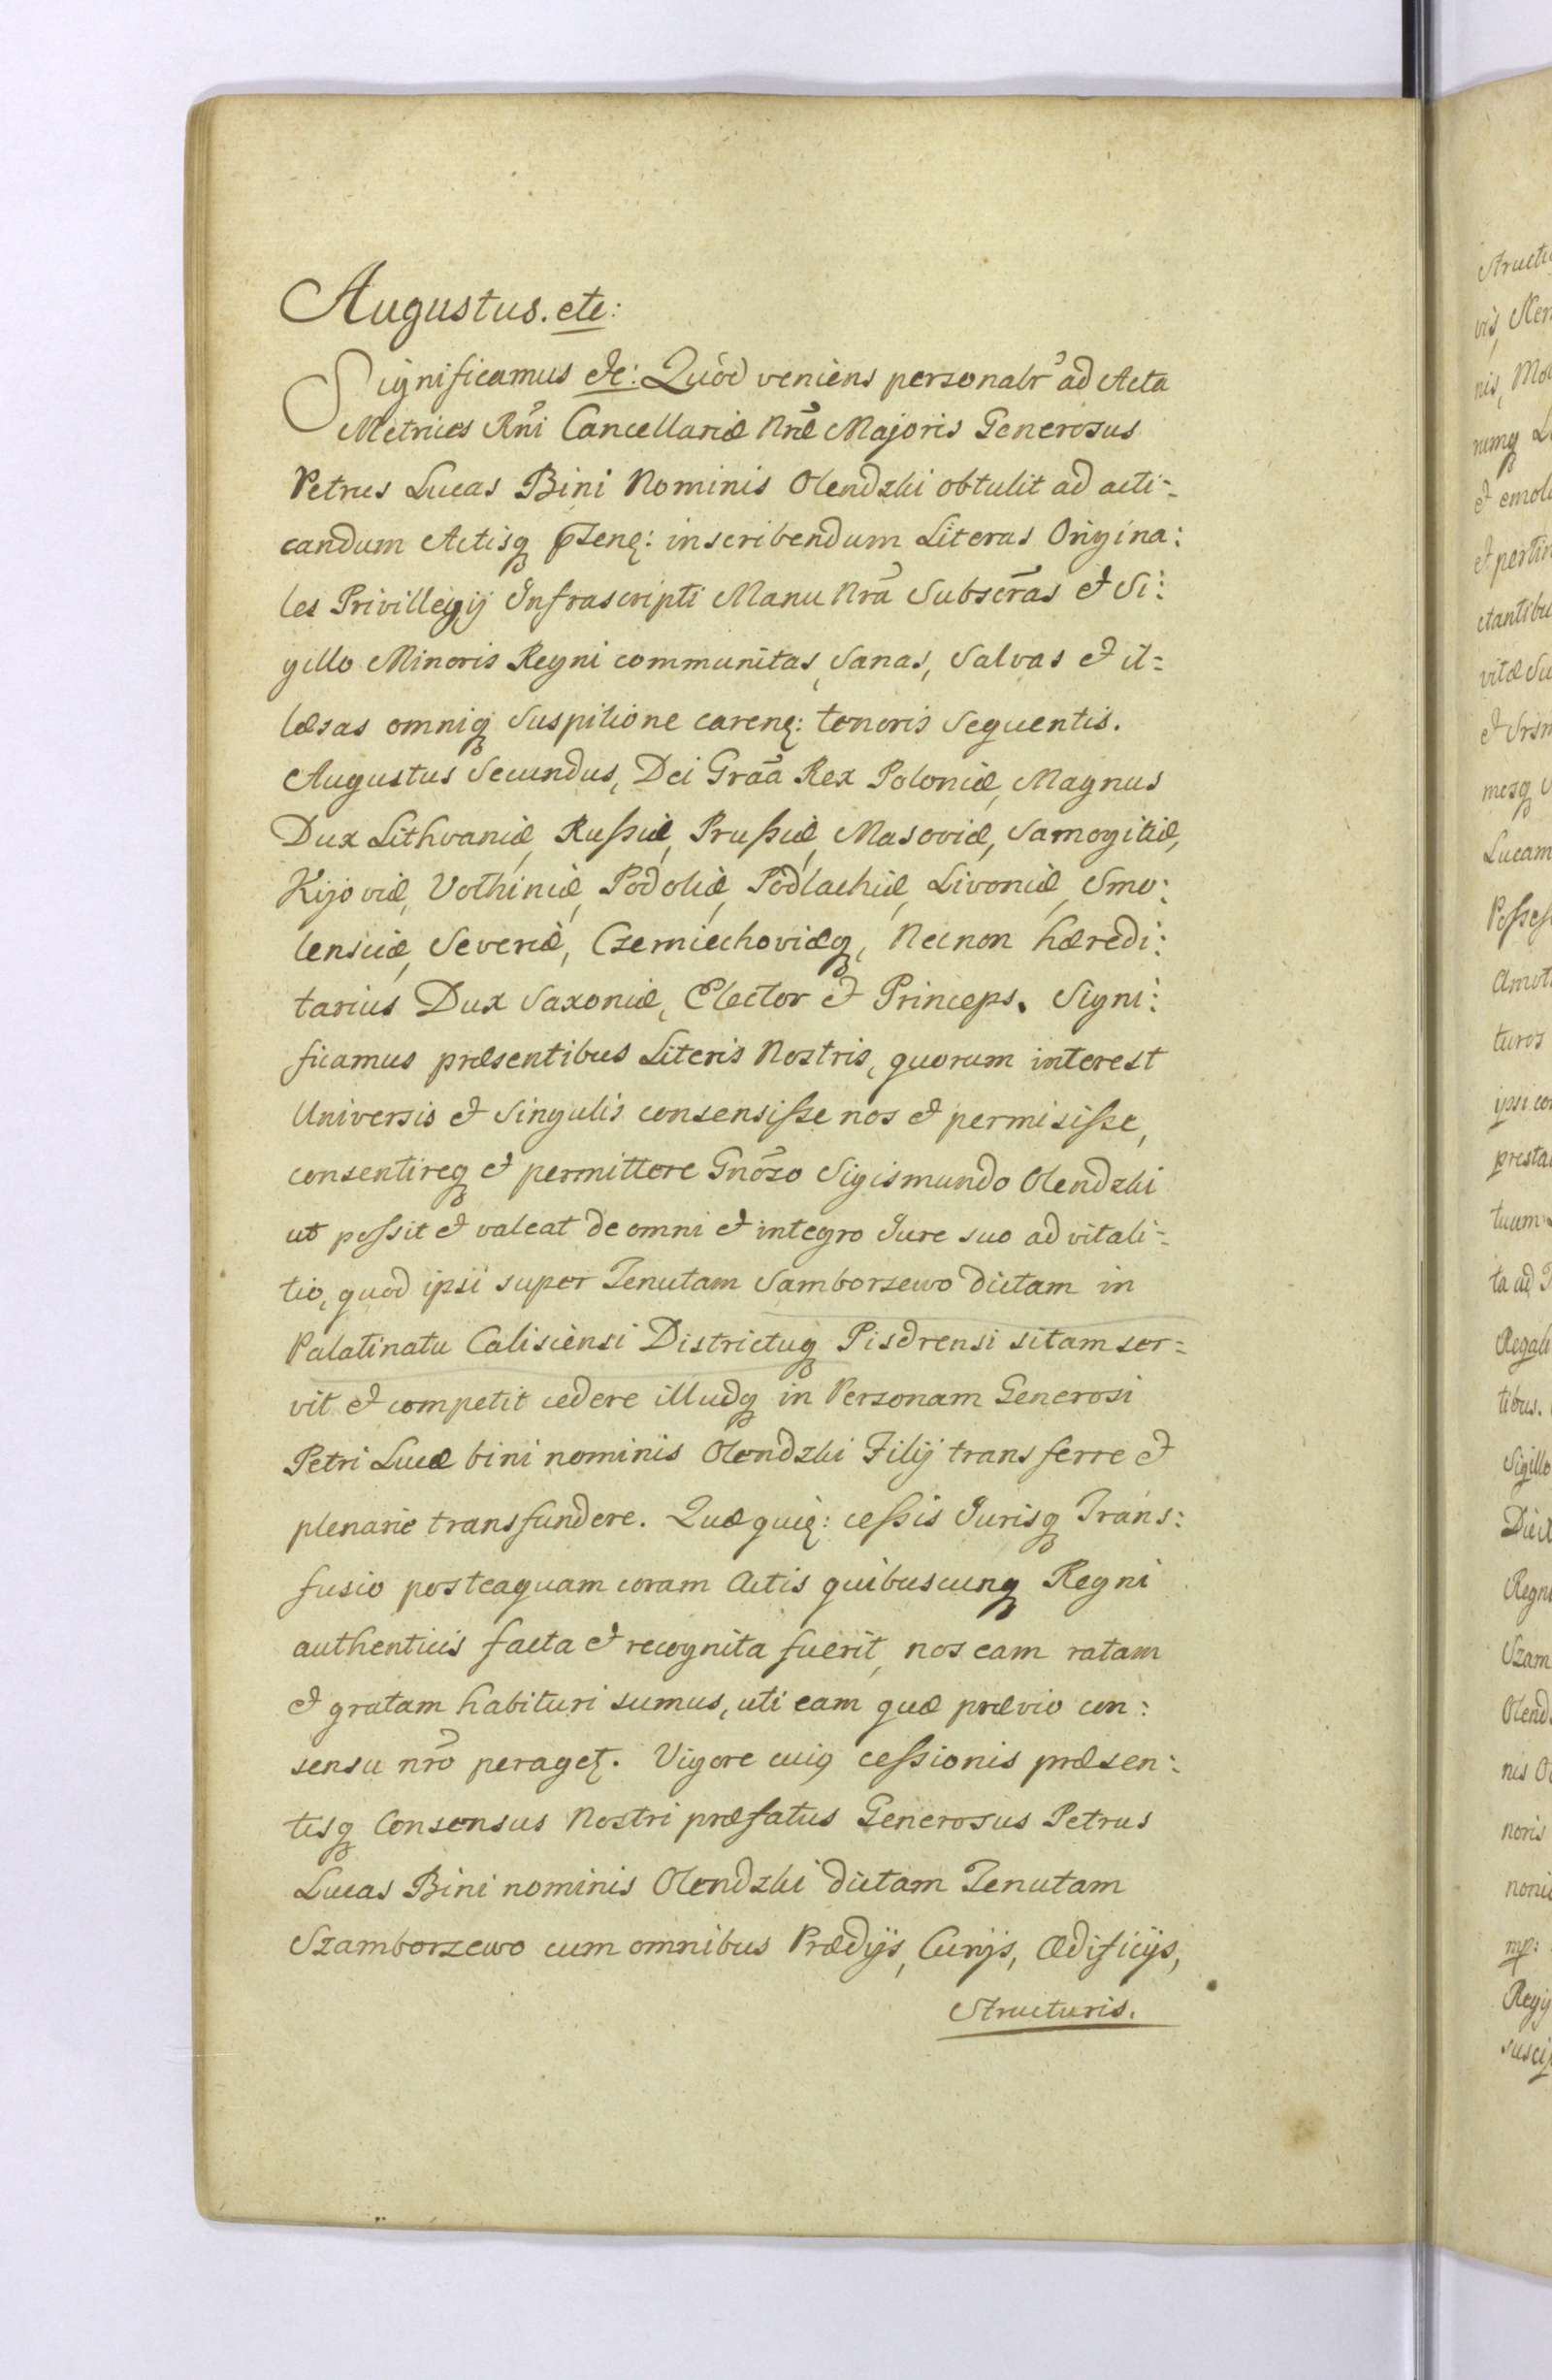 Augustus. etc:
Significamus etc: Quòd veniens personalr̃ ad Acta
Metrices Rñi Cancellariæ Nræ̃ Majoris Generosus
Petrus Lucas Bini Nominis Olendzki obtulit ad acti-
candum Actisq́ꝫ inscribendum Literas Origina:
les Privillegij Infrascripti Manu Nrã Subscrãs et Si:
gillo Minoris Regni communitas, Sanas, Salvas et il=
læsas omniqꝫ Suspitione careñ: tenoris Sequentis.
Augustus Secundus, Dei Graã Rex Poloniæ, Magnus
Dux Lithvaniæ, Russiæ, Prussiæ, Masoviæ, Samogitiæ,
Kijoviæ, Volhiniæ, Podoliæ, Podlachiæ, Livoniæ, Smo:
lensciæ, Severiæ, Czerniechoviæqꝫ, Necnon hæredi:
tarius Dux Saxoniæ, Elector et Princeps. Signi:
ficamus præsentibus Literis Nostris, quorum interest
Universis et Singulis consensisse nos et permisisse,
consentireqꝫ et permittere Gnõso Sigismundo Olendzki
ut possit et valeat de omni et integro Jure suo advitali-
tio, quod ipsi super Tenutam Samborzewo dictam in
Palatinatu Calisciensi Districtuqꝫ Pisdrensi sitam ser=
vit et competit cedere illudqꝫ in Personam Generosi
Petri Lucæ bini nominis Olendzki Filij transferre et
plenarie transfundere. Quæ quiꝫ: cessis Jurisqꝫ Trans:
fusio posteaquam coram Actis quibuscunqꝫ Regni
authenticis facta et recognita fuerit, nos eam ratam
et gratam habituri sumus, uti eam quæ prævio con:
sensu nrõ peraget̃. Vigore cuiꝰ cessionis præsen:
tisqꝫ Consensus Nostri præfatus Generosus Petrus
Lucas Bini nominis Olendzki dictam Tenutam
Szamborzewo cum omnibus Prædijs, Curijs, Ædificijs,
Structuris.